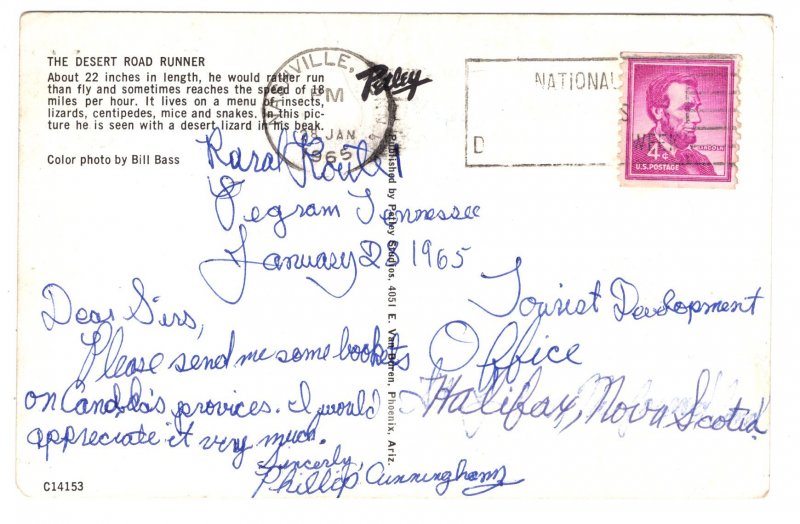 THE DESERT ROAD RUNNER
About 22 inches in length, he would rather run
than fly and sometimes reaches the speed of 18
miles per hour. It lives on a menu of insects,
lizards, centipedes, mice and snakes. In this pic-
ture he is seen with a desert lizard in his beak.
Color photo by Bill Bass
VILLE,
PM
JAN
1965
Petley
NATIONAL
D
WEEK
LINCOLN
4¢
U.S. POSTAGE
Published by Petley Studios, 4051 E. Van Buren, Phoenix, Ariz.
Rural Route 1
Pegram Tennessee
January 1965
Dear Sirs,
Please send me some booklets
on Canada's provices. I would
appreciate it very much.
Sincerly,
Phillip Cunningham
Tourist Development
Office
Halifax, Nova Scotia
C14153